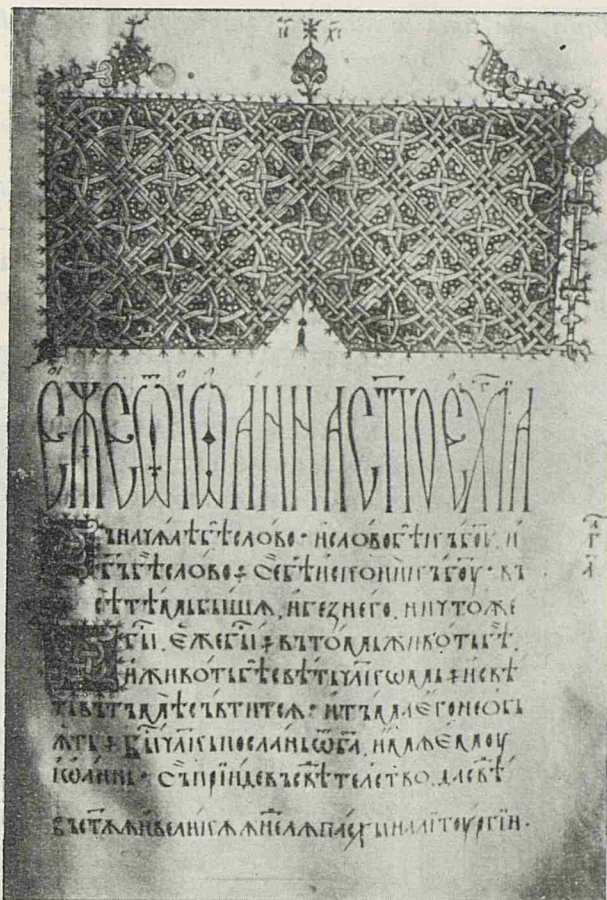 іс хс
ЕЖЕѾІѠАННАСТ҃ОЕѴ҃ЛІА
Въначѧлѣбѣслово · исловобѣкъб҃оу, и
б҃ъбѣслово ⁘ Себѣисконикъб҃оу · въ
сѣтѣмьбышѧ, ибезнего, ничтоже
бы҃, ежебы҃ ⁘ вътомьживотьбѣ,
иживотьбѣсвѣтьчл҃кѡмь ⁘ исвѣ
тьвътъмѣсъвтитсѧ · итъмаегонеобь
ѫть ⁘ Бы҃чл҃кьпосланьѿб҃а, имѧемоу
іѡаннь · Съпрїидевъсвѣтелство, дасвѣ
въст҃ѫѧивеликѫѧнел҃ѧпасхыналїтоургїи ·